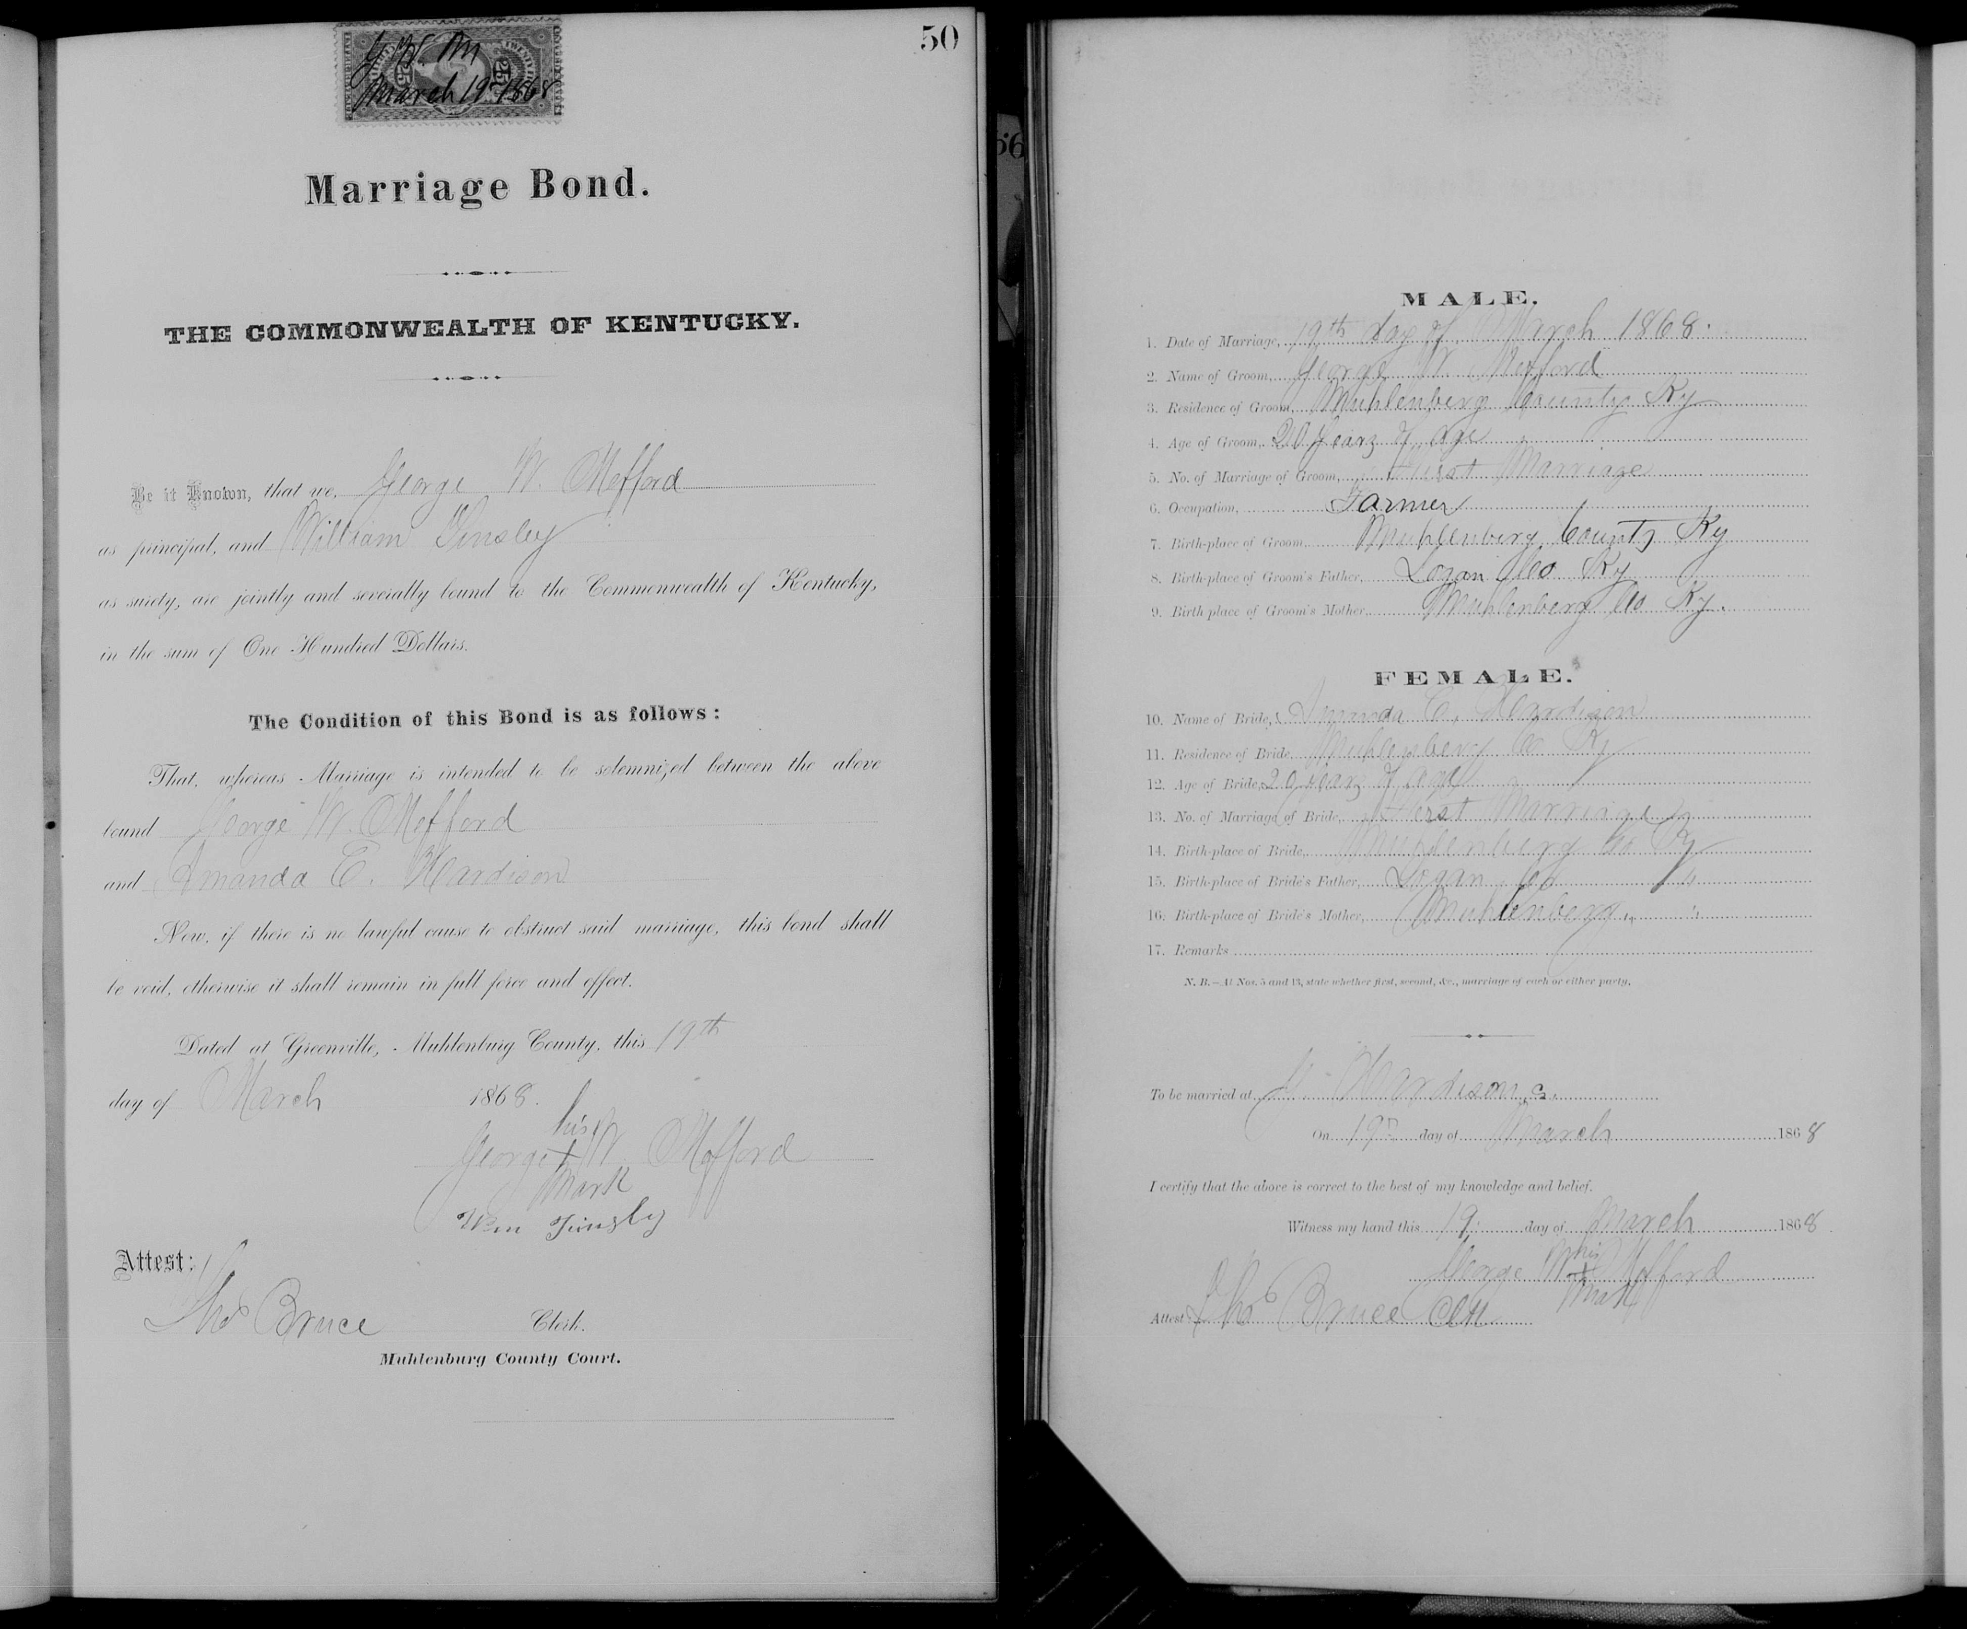 50
25 25
G. W. M
March 19th 1868
Marriage Bond.
THE COMMONWEALTH OF KENTUCKY.
Be it Known, that we, George W. Mefford
as principal, and William Tinsley
as surety, are jointly and severally bound to the Commonwealth of Kentucky,
in the sum of One Hundred Dollars.
The Condition of this Bond is as follows:
That, whereas Marriage is intended to be solemnized between the above
bound George W. Mefford
and Amanda E. Hardison
Now, if there is no lawful cause to obstruct said marriage, this bond shall
be void, otherwise it shall remain in full force and effect.
Dated at Greenville, Muhlenburg County, this 19th
day of March 1868.
his
George X W. Mefford
mark
Wm Tinsley
Attest:
Thos Bruce Clerk.
Muhlenburg County Court.
56
MALE.
1. Date of Marriage, 19th day of March 1868.
2. Name of Groom, George W. Mefford
3. Residence of Groom, Muhlenberg County Ky
4. Age of Groom, 20 years of age
5. No. of Marriage of Groom, First Marriage
6. Occupation, Farmer
7. Birth-place of Groom, Muhlenberg County Ky
8. Birth-place of Groom's Father, Logan Co Ky
9. Birth place of Groom's Mother, Muhlenberg Co Ky.
FEMALE.
10. Name of Bride, Amanda E. Hardison
11. Residence of Bride, Muhlenberg Co Ky
12. Age of Bride, 20 years of age
13. No. of Marriage of Bride, First Marriage
14. Birth-place of Bride, Muhlenberg Co Ky
15. Birth-place of Bride's Father, Logan Co "
16. Birth-place of Bride's Mother, Muhlenberg " "
17. Remarks
N. B.—At Nos. 5 and 13, state whether first, second, &c., marriage of each or either party.
To be married at Hardisons.
On 19th day of March 1868
I certify that the above is correct to the best of my knowledge and belief.
Witness my hand this 19 day of March 1868
his
George W X Mefford
mark
Attest Thos Bruce Clk